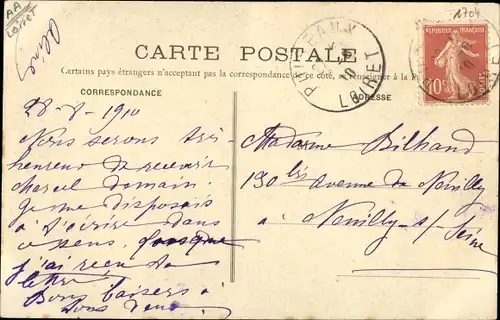 AA
Loiret
Aline
1704
CARTE POSTALE
Certains pays étrangers n'acceptant pas la correspondance de ce côté, se renseigner à la P
CORRESPONDANCE
ADRESSE
LOIRET
RÉPUBLIQUE FRANÇAISE
10c
28-8-1910
Nous serons très
heureux de recevoir
Marcel Demain.
Je me disposais
à t'écrire dans
ce sens, lorsque
j'ai reçu ta
lettre
Bons baisers à
tous deux.
Madame Bilhand
190 bis avenue de Neuilly
à Neuilly s/ Seine